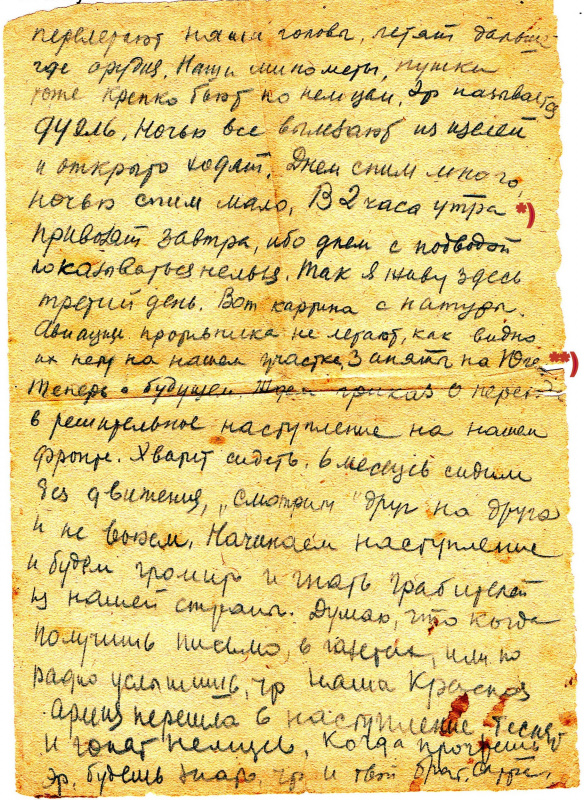 перелетают наши головы, летят дальше
где орудия. Наши минометы, пушки
тоже крепко бьют по немцам. Эт называется
дуэль. Ночью все вылезают из щелей
и открыто ходят. Днем спим много,
ночью спим мало. В 2 часа утра *)
привозят завтра, ибо днем с подводой
показываться нельзя. Так я живу здесь
третий день. Вот картина с натуры.
Авиация противника не летают, как видно
их нету на нашем участке. Заняты на Юге **)
Теперь о будущем. Ждем приказ о переходе
в решительное наступление на нашем
фронте. Хватит сидеть. 6 месяцев сидим
без движения, "смотрим" друг на друга
и не воюем. Начинаем наступление
и будем громить и гнать грабителей
из нашей страны. Думаю, что когда
получишь письмо, в газетах, или по
радио услышишь, чт наша Красная
Армия перешла в наступление теснят
и гонят немцев. Когда прочтешь
эт, будешь знать, чт и твой брат